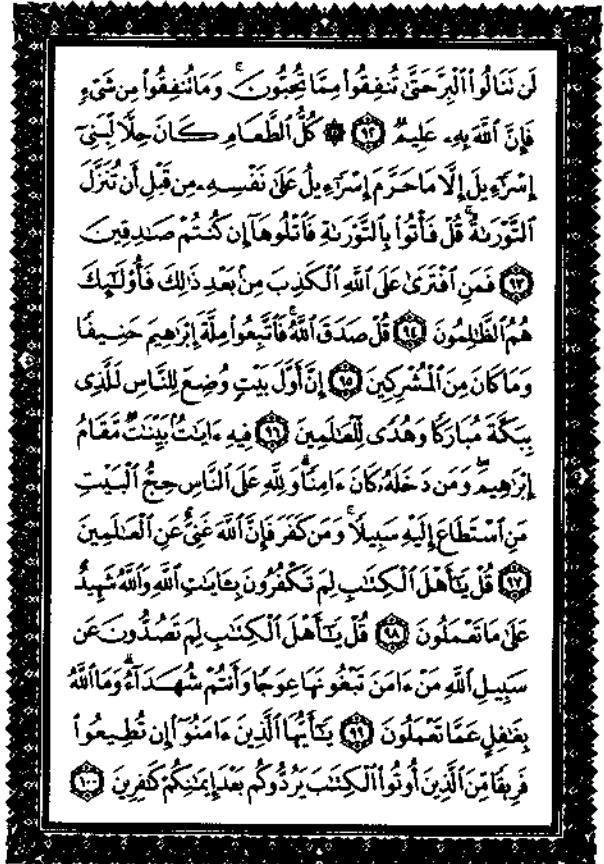 لَن تَنَالُوا۟ ٱلْبِرَّ حَتَّىٰ تُنفِقُوا۟ مِمَّا تُحِبُّونَ ۚ وَمَا تُنفِقُوا۟ مِن شَىْءٍ
فَإِنَّ ٱللَّهَ بِهِۦ عَلِيمٌ ﴿٩٢﴾ ۞ كُلُّ ٱلطَّعَامِ كَانَ حِلًّا لِّبَنِىٓ
إِسْرَٰٓءِيلَ إِلَّا مَا حَرَّمَ إِسْرَٰٓءِيلُ عَلَىٰ نَفْسِهِۦ مِن قَبْلِ أَن تُنَزَّلَ
ٱلتَّوْرَىٰةُ ۗ قُلْ فَأْتُوا۟ بِٱلتَّوْرَىٰةِ فَٱتْلُوهَآ إِن كُنتُمْ صَـٰدِقِينَ
﴿٩٣﴾ فَمَنِ ٱفْتَرَىٰ عَلَى ٱللَّهِ ٱلْكَذِبَ مِنۢ بَعْدِ ذَٰلِكَ فَأُو۟لَـٰٓئِكَ
هُمُ ٱلظَّـٰلِمُونَ ﴿٩٤﴾ قُلْ صَدَقَ ٱللَّهُ ۗ فَٱتَّبِعُوا۟ مِلَّةَ إِبْرَٰهِيمَ حَنِيفًا
وَمَا كَانَ مِنَ ٱلْمُشْرِكِينَ ﴿٩٥﴾ إِنَّ أَوَّلَ بَيْتٍ وُضِعَ لِلنَّاسِ لَلَّذِى
بِبَكَّةَ مُبَارَكًا وَهُدًى لِّلْعَـٰلَمِينَ ﴿٩٦﴾ فِيهِ ءَايَـٰتٌۢ بَيِّنَـٰتٌ مَّقَامُ
إِبْرَٰهِيمَ ۖ وَمَن دَخَلَهُۥ كَانَ ءَامِنًا ۗ وَلِلَّهِ عَلَى ٱلنَّاسِ حِجُّ ٱلْبَيْتِ
مَنِ ٱسْتَطَاعَ إِلَيْهِ سَبِيلًا ۚ وَمَن كَفَرَ فَإِنَّ ٱللَّهَ غَنِىٌّ عَنِ ٱلْعَـٰلَمِينَ
﴿٩٧﴾ قُلْ يَـٰٓأَهْلَ ٱلْكِتَـٰبِ لِمَ تَكْفُرُونَ بِـَٔايَـٰتِ ٱللَّهِ وَٱللَّهُ شَهِيدٌ
عَلَىٰ مَا تَعْمَلُونَ ﴿٩٨﴾ قُلْ يَـٰٓأَهْلَ ٱلْكِتَـٰبِ لِمَ تَصُدُّونَ عَن
سَبِيلِ ٱللَّهِ مَنْ ءَامَنَ تَبْغُونَهَا عِوَجًا وَأَنتُمْ شُهَدَآءُ ۗ وَمَا ٱللَّهُ
بِغَـٰفِلٍ عَمَّا تَعْمَلُونَ ﴿٩٩﴾ يَـٰٓأَيُّهَا ٱلَّذِينَ ءَامَنُوٓا۟ إِن تُطِيعُوا۟
فَرِيقًا مِّنَ ٱلَّذِينَ أُوتُوا۟ ٱلْكِتَـٰبَ يَرُدُّوكُم بَعْدَ إِيمَـٰنِكُمْ كَـٰفِرِينَ ﴿١٠٠﴾